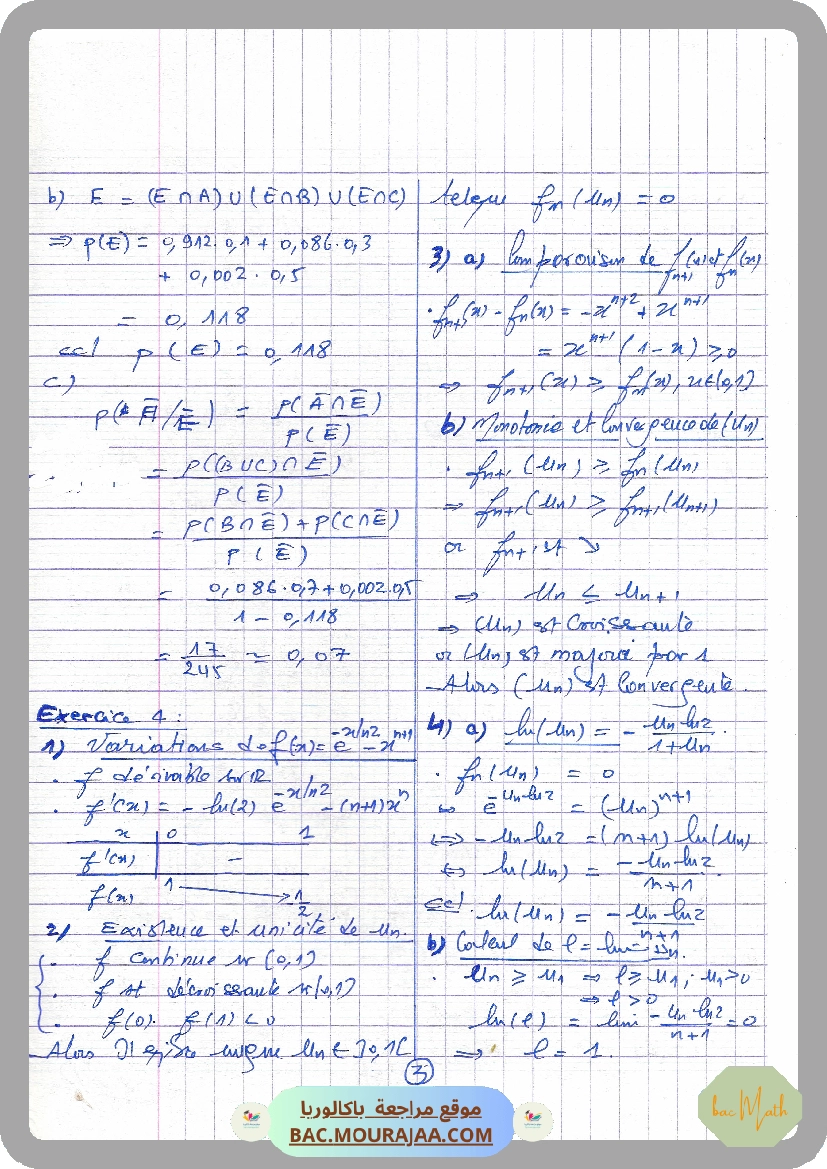 b) E = (E∩A)∪(E∩B)∪(E∩C)
⇒ p(E) = 0,912·0,1 + 0,086·0,3
+ 0,002·0,5
= 0,118
ccl p(E) = 0,118
c)
p(Ā/Ē) = p(Ā∩Ē) / p(Ē)
= p((B∪C)∩Ē) / p(Ē)
= p(B∩Ē)+p(C∩Ē) / p(Ē)
= 0,086·0,7+0,002·0,5 / 1-0,118
= 17/245 ≃ 0,07
Exercice 4 :
1) Variations de f(x)=e^{-xln2}-x^{n+1}
· f dérivable sur IR
· f'(x) = -ln(2) e^{-xln2} -(n+1)x^n
x 0 1
f'(x) -
f(x) 1 -1/2
2) Existence et unicité de Un.
· f continue sur (0,1)
· f st décroissante sur (0,1)
· f(0). f(1) < 0
Alors ∃ unique Un ∈ ]0,1[
telque fn(Un) = 0
3) a) Comparaison de f_{n+1}(x) et fn(x)
· f_{n+1}(x) - fn(x) = -x^{n+2} + x^{n+1}
= x^{n+1} (1-x) ≥ 0
⇒ f_{n+1}(x) ≥ fn(x), x∈(0,1)
b) Monotonie et Convergence de (Un)
· f_{n+1}(Un) ≥ fn(Un)
⇒ f_{n+1}(Un) ≥ f_{n+1}(U_{n+1})
or f_{n+1} st ↘
⇒ Un ≤ U_{n+1}
⇒ (Un) st Croissante
or (Un) st majoré par 1
Alors (Un) st Convergente.
4) a) ln(Un) = - Un ln2 / 1+Un
· fn(Un) = 0
⇔ e^{-Un ln2} = (Un)^{n+1}
⇔ -Un ln2 = (n+1) ln(Un)
⇔ ln(Un) = -Un ln2 / n+1
ccl. ln(Un) = -Un ln2 / n+1
b) Calcul de l = lim Un.
· Un ≥ U1 ⇒ l ≥ U1 ; U1 > 0
⇒ l > 0
ln(l) = lim -Un ln2 / n+1 = 0
⇒ l = 1.
3
موقع مراجعة باكالوريا
BAC.MOURAJAA.COM
bac Math